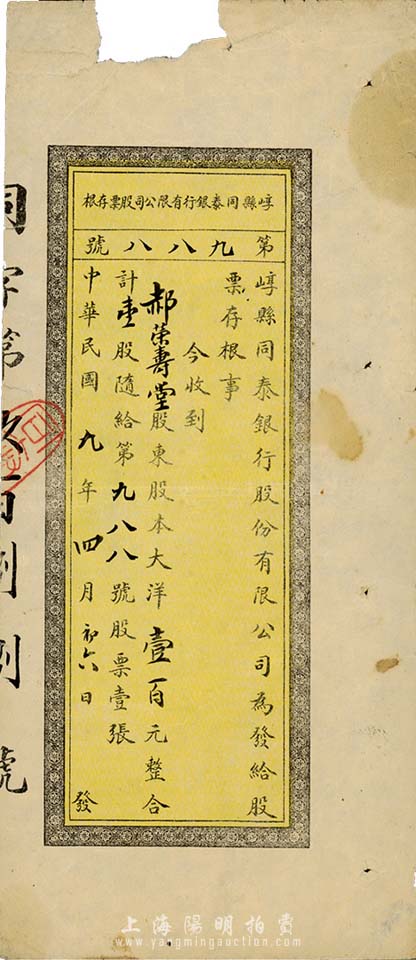 崞縣同泰銀行有限公司股票存根
第九八八號
崞縣同泰銀行股份有限公司為發給股
票存根事
今收到
郝榮壽堂股東股本大洋壹百元整合
計壹股隨給第九八八號股票壹張
中華民國九年四月初六日發
同字第玖百捌捌號
上海陽明拍賣
www.yangmingauction.com